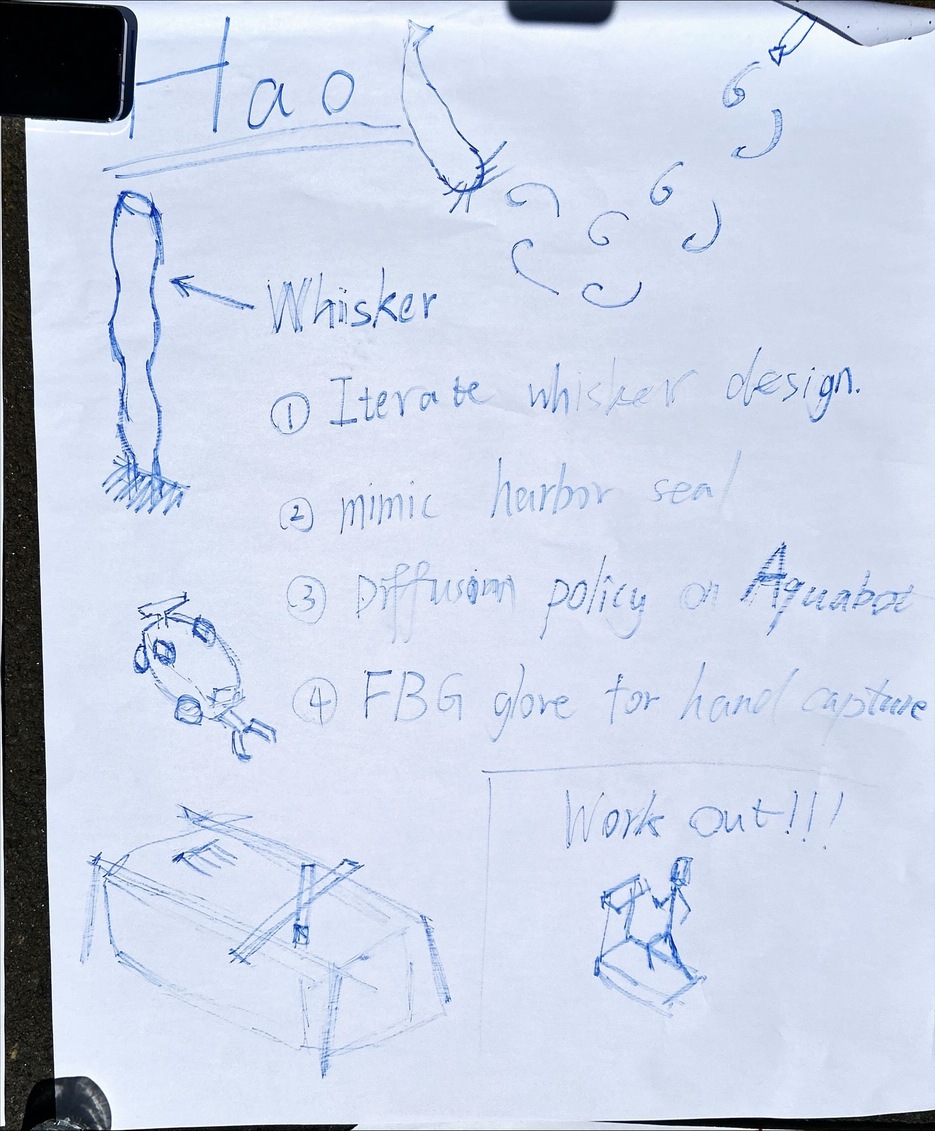 Hao
Whisker
① Iterate whisker design.
② mimic harbor seal
③ Diffusion policy on Aquabot
④ FBG glove for hand capture
Work out!!!